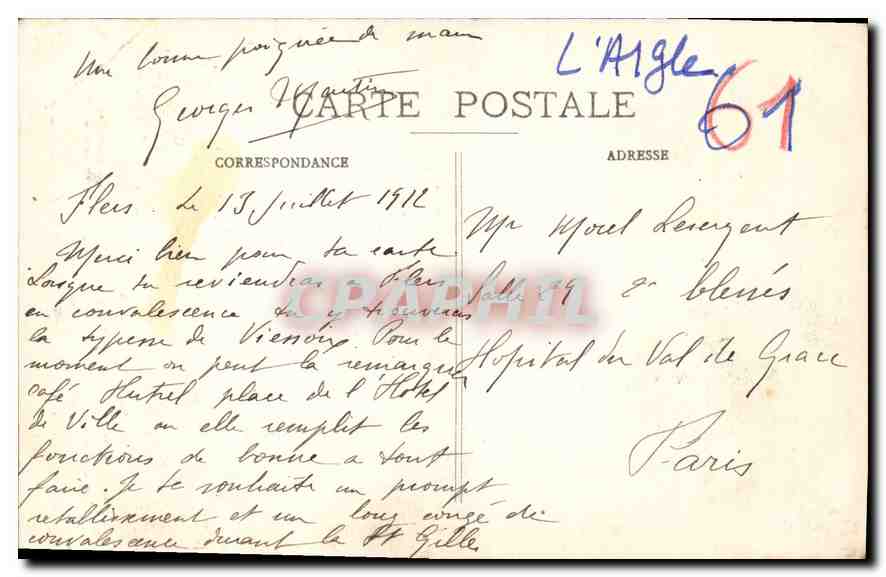 Une bonne poignée de main
Georges Martin
L'Aigle
61
CARTE POSTALE
CORRESPONDANCE
ADRESSE
Flers. Le 13 Juillet 1912
Merci bien pour ta carte.
Lorsque tu reviendras a Flers
en convalescence tu y trouveras
la typesse de Viessoix. Pour le
moment on peut la remarquer
café Hutrel place de l'Hotel
de Ville ou elle remplit les
fonctions de bonne a tout
faire. Je te souhaite un prompt
retablissement et un long congé de
convalescence durant la St Gilles
Mr Morel Lesergent
Salle 29 2e blessés
Hopital du Val de Grace
Paris
CPAPHIL